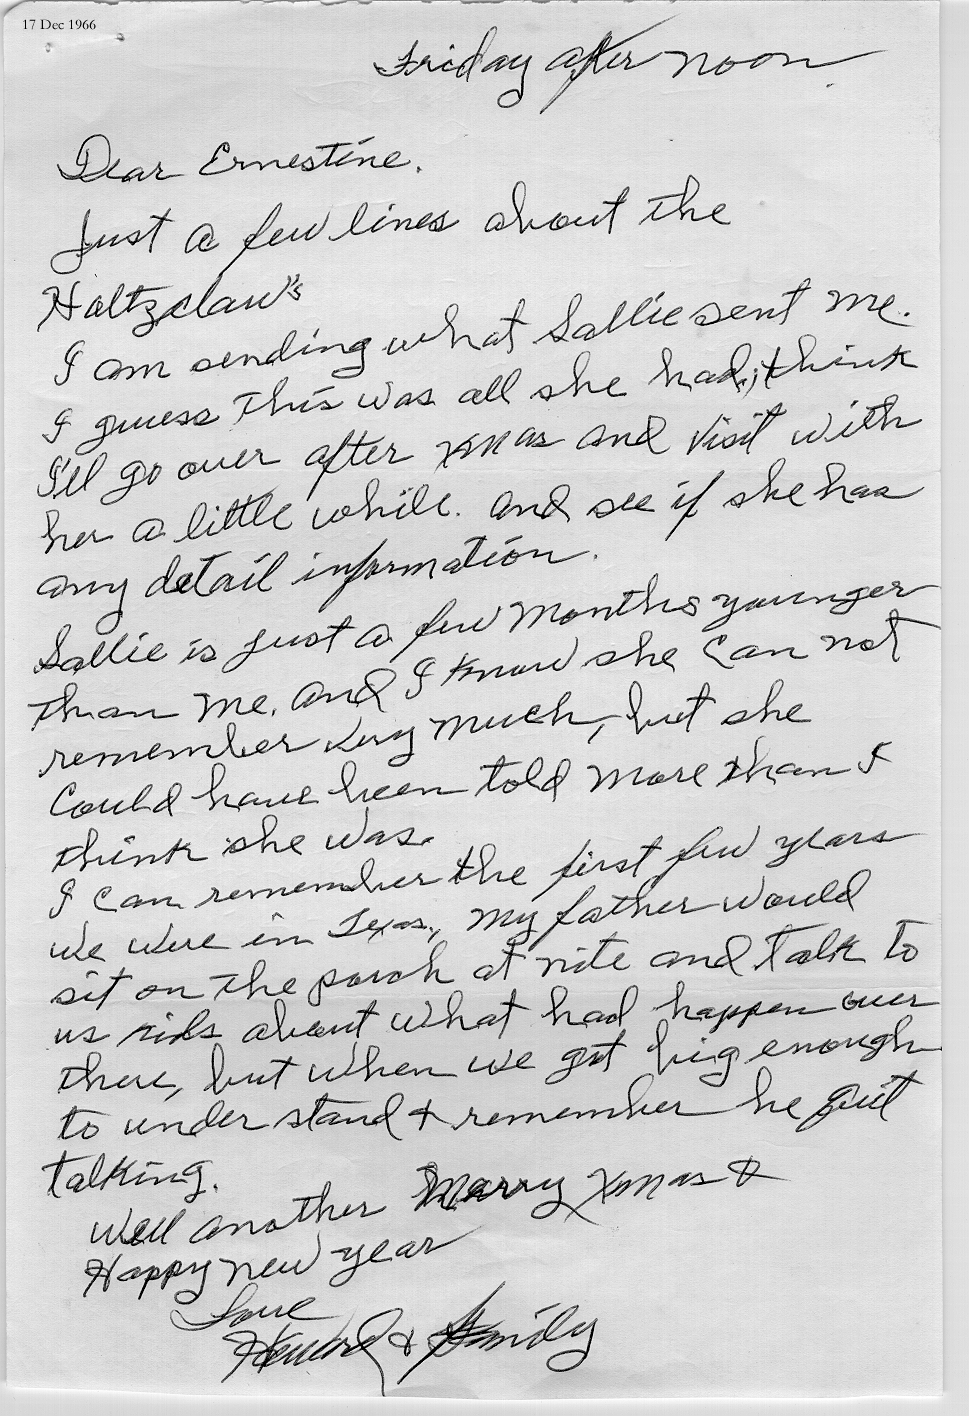 17 Dec 1966
Friday after noon
Dear Ernestine.
Just a few lines about the
Holtzclaw's
I am sending what Sallie sent me.
I guess this was all she had, think
I'll go over after xmas and visit with
her a little while. and see if she has
any detail information.
Sallie is just a few months younger
than me. and I know she can not
remember very much, but she
could have been told more than I
think she was.
I can remember the first few years
we were in Texas, my father would
sit on the porch at nite and talk to
us kids about what had happen over
there, but when we got big enough
to under stand & remember he quit
talking.
Well another Marry Xmas &
Happy new year
Love
& Family